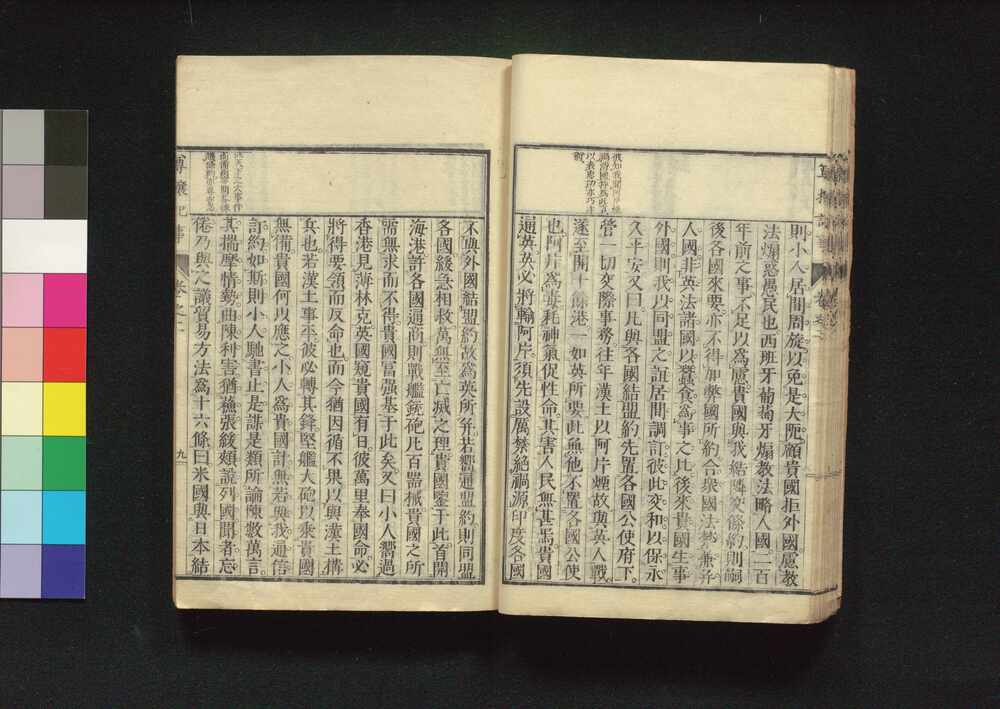 則小人居間周旋以免是大阨顧貴國拒外國慮教
法煽惑愚民也西班牙葡萄牙煽教法略人國二百
年前之事不足以爲慮貴國與我結隣交條約則嗣
後各國來要亦不得加弊國所約合衆國法禁兼并
人國非英法諸國以蠶食爲事之比後來貴國生事
外國則我以同盟之誼居間調訂彼此交和以保永
久平安又曰凡與各國結盟約先置各國公使府下
管一切交際事務往年漢土以阿片煙故與英人戰
遂至開十餘港一如英所要此無他不置各國公使
也阿片爲毒耗神氣促性命其害人民無甚焉貴國
逼英英必將輸阿片須先設厲禁絶禍源印度各國
不與外國結盟約故爲英所并若嚮通盟約則同盟
各國緩急相救萬無至亡滅之理貴國鑒于此首開
海港許各國通商則戰艦銃砲凡百器械貴國之所
需無求而不得貴國富强基于此矣又曰小人嚮過
香港見薄林克英國窺貴國有日彼萬里奉國命必
將得要領而反命也而今猶因循不果以與漢土搆
兵也若漢土事平彼必轉其鋒堅艦大砲以乘貴國
無備貴國何以應之小人爲貴國計無若與我通信
訂約如斯則小人馳書止是謀是類所諭陳數萬言
其揣摩情勢曲陳利害猶蘇張緩頰說列國聞者忘
倦乃與之議貿易方法爲十六條曰米國與日本結
尊攘記事
卷之二
九